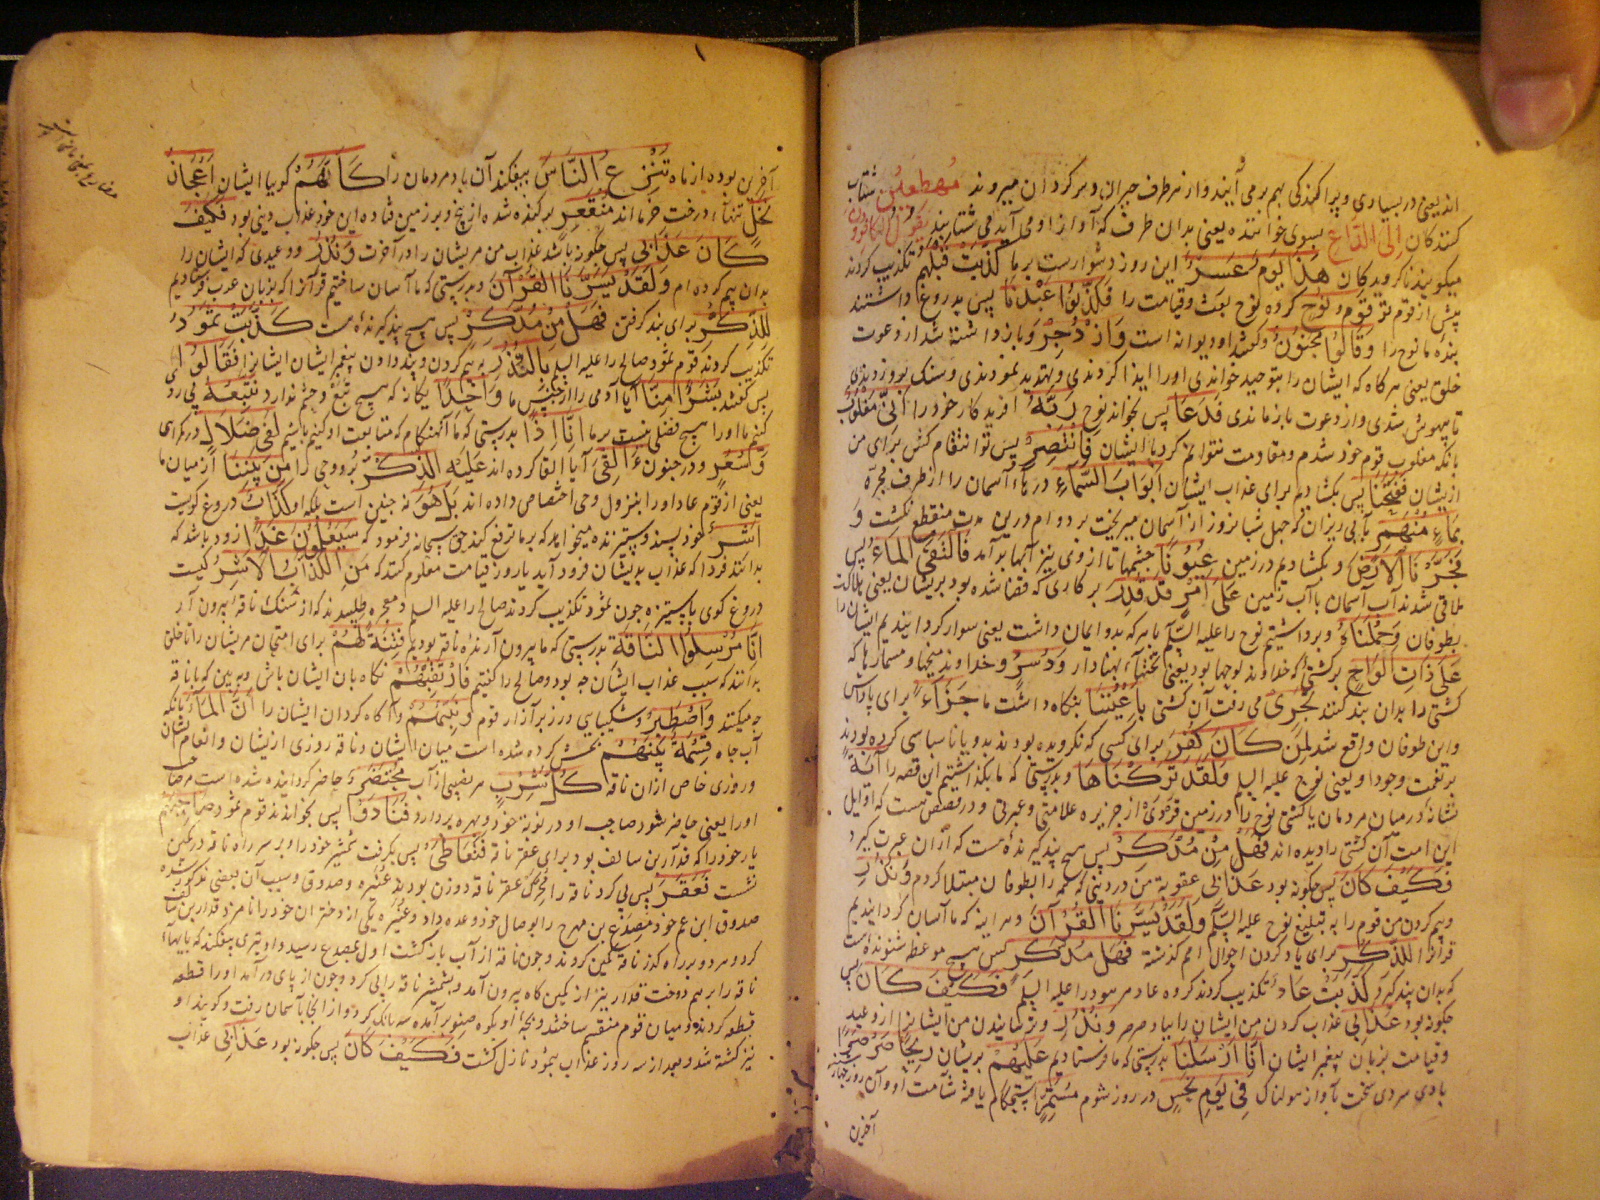 اند یعنی در بسیاری و پراکندگی بهم برمی آیند و از هر طرف حیران و سرگردان میروند مُهطِعِینَ شتاب
کنندگان اِلیَ الدَّاعِ بسوی خواننده یعنی بدان طرف که آواز او می آید می شتابند یَقُولُ الکافِرُونَ
میگویند ناگرویدگان هٰذَا یَومٌ عَسِرٌ این روز دشوارست بر ما کَذَّبَت قَبلَهُم تکذیب کردند
پیش از قوم تو قَومُ نُوحٍ گروه نوح بعث و قیامت را فَکَذَّبُوا عَبدَنَا پس بدروغ داشتند
بنده ما نوح را وَقَالُوا مَجنُونٌ و گفتند او دیوانه است وَازدُجِرَ و باز داشته شد از دعوت
خلق یعنی هرگاه که ایشان را بتوحید خواندی اورا ایذا کردندی و بتهدید نمودندی و سنک بروزدندی
تا بیهوش شدی و از دعوت باز ماندی فَدَعَا پس بخواند نوح رَبَّهُ آفریدگار خود را اَنِّی مَغلُوبٌ
بانکه مغلوب قوم خود شدم و مقاومت نتوانم کرد با ایشان فَانتَصِر پس تو انتقام کش برای من
از یشان فَفَتَحنَا پس بکشادیم برای عذاب ایشان اَبوَابَ السَّمَاءِ درهاء آسمان را از طرف مجره
بِمَاءٍ مُنهَمِرٍ بآبی ریزان که چهل شبانروز از آسمان میریخت بر دوام درین مدت منقطع نکشت وَ
فَجَّرنَا الاَرضَ و بکشادیم در زمین عُیُونًا چشمها تا از وی نیز آبها برآمد فَالتَقَی المَاءُ پس
ملاقی شدند آب آسمان با آب زمین عَلَی اَمرٍ قَد قُدِرَ بر کاری که قضا شده بود بریشان یعنی هلاکت
بطوفان وَحَمَلنَاهُ و برداشتیم نوح را علیه السلام با هر که بدو ایمان داشت یعنی سوار گردانیدیم ایشان را
عَلَی ذَاتِ اَلوَاحٍ بر کشتی که خداوند لوحها بود یعنی تختهاء پهنادار وَدُسُرٍ و خداوند میخها و مسمارها که
کشتی را بدان بند کنند تَجرِی می رفت آن کشتی بِاَعیُنِنَا بنگاه داشت ما جَزَاءً برای پاداش
و این طوفان واقع شد لِمَن کَانَ کُفِرَ برای کسی که نگرویده بودند بدو یا ناسپاسی کرده بودند
بر نعمت وجود او یعنی نوح علیه السلام وَلَقَد تَرَکنَاهَا و بدرستی که ما بگذاشتیم این قصه را آیَةً
نشانه در میان مردمان یا کشتی نوح را در زمین از جزیره علامتی و عبرتی و در قصص است که اوایل
این امت آن کشتی را دیده اند فَهَل مِن مُدَّکِرٍ پس هیچ پند گیرنده هست که از ان عبرت گیرد
فَکَیفَ کَانَ پس چگونه بود عَذَابِی عقوبة من وقتی که همه را بطوفان مبتلا کردم وَنُذُرِ
و بیم کردن من قوم را به تبلیغ نوح علیه السلام وَلَقَد یَسَّرنَا القُرآنَ و هر اینه که ما آسان گردانیدیم
قرآنرا لِلذِّکرِ برای یاد کردن احوال امم گذشته فَهَل مِن مُدَّکِرٍ پس هیچ موعظه شنونده است
که بدان پند گیرد کَذَّبَت عَادٌ تکذیب کردند گروه عاد مر هود را علیه السلام فَکَیفَ کَانَ پس
چگونه بود عَذَابِی عذاب کردن من ایشان را بباد صرصر وَنُذُرِ و ترسانیدن من ایشانرا از وعید
و قیامت بزبان پیغمبر ایشان اِنَّا اَرسَلنَا بدرستی که ما فرستادیم عَلَیهِم بریشان رِیحًا صَرصَرًا
بادی سردی سخت با آواز هولناک فِی یَومِ نَحسٍ در روز شوم مُستَمِرٍّ استحکام یافته شامت او و آن روز چهارشنبه
آخرین
آخرین بوده از ماه تَنزِعُ النَّاسَ بیفکند آن باد مردمان را کَاَنَّهُم گویا ایشان اَعجَازُ
نَخلٍ تنهاء درخت خرما اند مُنقَعِرٍ برکنده شده از بیخ و بر زمین فتاده این خود عذاب دنیی بود فَکَیفَ
کَانَ عَذَابِی پس چگونه باشد عذاب من مریشان را در آخرت وَنُذُرِ و وعیدی که ایشان را
بدان بیم کرده ام وَلَقَد یَسَّرنَا القُرآنَ و بدرستی که ما آسان ساختیم قرآنرا که بزبان عرب فرستادیم
لِلذِّکرِ برای پند گرفتن فَهَل مِن مُدَّکِرٍ پس هیچ پند گیرنده هست کَذَّبَت ثَمُودُ
تکذیب کردند قوم ثمود صالح را علیه السلام بِالنُّذُرِ به بیم کردن و پند دادن پیغمبر ایشان ایشانرا فَقَالُوا
پس گفتند اَبَشَرًا مِنَّا آیا آدمی را از جنس ما وَاحِدًا یگانه که هیچ تبع و حشم ندارد نَتَّبِعُهُ پی روی
کنیم ما او را هیچ فضلی نیست بر ما اِنَّا اِذًا بدرستی که ما آنهنگام که متابعت او کنیم باشیم لَفِی ضَلَالٍ در گمراهی
وَسُعُرٍ و در جنون ءَاُلقِیَ آیا القا کرده اند عَلَیهِ الذِّکرُ برو وحی را مِن بَینِنَا از میان ما
یعنی از قوم عاد اورا بنزول وحی اختصاص داده اند بَل هُوَ نه چنین است بلکه او کَذَّابٌ دروغ گویست
اَشِرٌ خود پسند و ستیزنده میخواهد که بر ما ترفع کند حق سبحانه فرمود که سَیَعلَمُونَ غَدًا زود باشد که
بدانند فردا که عذاب بدیشان فرود آید یا روز قیامت معلوم کنند که مَنِ الکَذَّابُ الاَشِرُ کیست
دروغ گوی با ستیزه چون ثمود تکذیب کردند صالح را علیه السلام و معجزه طلبیدند که از سنک ناقه بیرون آر
اِنَّا مُرسِلُوا النَّاقَةِ بدرستی که ما بیرون آرنده ناقه بودیم فِتنَةً لَهُم برای امتحان مریشان را تا خلق
بدانند که سبب عذاب ایشان چه بود و صالح را گفتیم فَارتَقِبهُم نگاه بان ایشان باش و ببین که با ناقه
چه میکنند وَاصطَبِر و شکیبایی ورز بر آزار قوم وَنَبِّئهُم و آگاه گردان ایشان را اَنَّ المَاءَ بانکه
آب چاه قِسمَةٌ بَینَهُم بخش کرده شده است میان ایشان و ناقه روزی از یشان و انعام ایشان
و روزی خاص ازان ناقه کُلُّ شِربٍ هر نصیبی از آب مُحتَضَرٌ حاضر گردانیده شده است مر صاحب
او را یعنی حاضر شود صاحب او در نوبة خود و بهره بردارد فَنَادَوا پس بخواندند قوم ثمود صَاحِبَهُم
یار خود را که قدار بن سالف بود برای عقر ناقه فَتَعَاطَی پس بگرفت شمشیر خود را و بر سر راه ناقه در کمین
نشست فَعَقَرَ پس پی کرد ناقه را محرض عقر ناقه دو زن بودند عنیزه و صدوق و سبب آن بعضی ذکر شده
صدوق ابن عم خود مصدع بن مهرج را بوصال خود وعده داد و عنیزه یکی از دختران خود را نامزد قدار بن سالف
کرد و هر دو بر راه گذر ناقه کمین کردند و چون ناقه از آب بازگشت اول بمصدع رسید و او تیری بیفکند که پایهاء
ناقه را بر هم دوخت قدار نیز از کمین گاه بیرون آمد و بشمشیر ناقه را پی کرد و چون از پای در آمد او را قطعه
قطعه کردند و میان قوم منقسم ساختند و بچه او بکوه صنوبر آمده سه بانک کرد و از انجا بآسمان رفت و گویند او
نیز کشته شد و بعد از سه روز عذاب بثمود نازل گشت فَکَیفَ کَانَ پس چگونه بود عَذَابِی عذاب